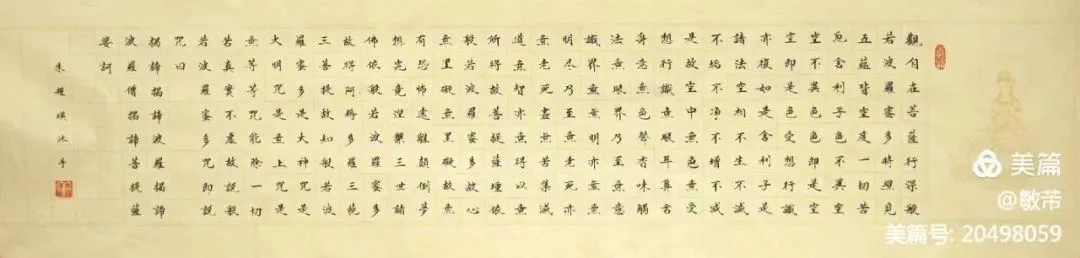 觀自在菩薩行深般
若波羅蜜多時照見
五蘊皆空度一切苦
厄舍利子色不異空
空不異色色即是空
空即是色受想行識
亦復如是舍利子是
諸法空相不生不滅
不垢不淨不增不減
是故空中無色無受
想行識無眼耳鼻舌
身意無色聲香味觸
法無眼界乃至無意
識界無無明亦無無
明盡乃至無老死亦
無老死盡無苦集滅
道無智亦無得以無
所得故菩提薩埵依
般若波羅蜜多故心
無罣礙無罣礙故無
有恐怖遠離顛倒夢
想究竟涅槃三世諸
佛依般若波羅蜜多
故得阿耨多羅三藐
三菩提故知般若波
羅蜜多是大神咒是
大明咒是無上咒是
無等等咒能除一切
苦真實不虛故說般
若波羅蜜多咒即說
咒曰
揭諦揭諦波羅揭諦
波羅僧揭諦菩提薩
婆訶
朱瑛沐手
美篇
@敏芾
美篇号: 20498059